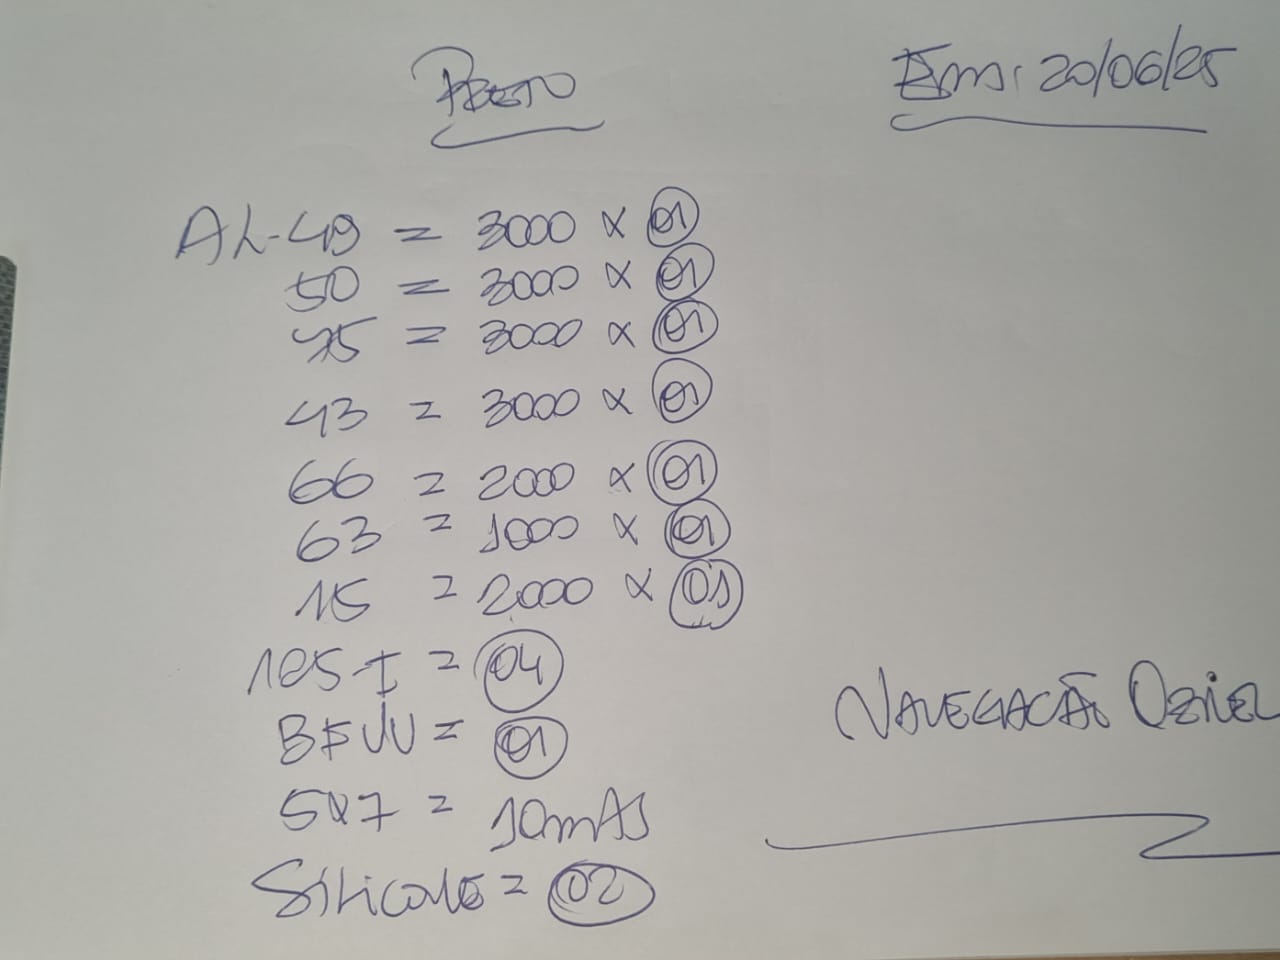 PRETO
Em: 20/06/25
AL-49 = 3000 x 01
50 = 3000 x 01
75 = 3000 x 01
43 = 3000 x 01
66 = 2000 x 01
63 = 1000 x 01
115 = 2000 x 01
125-I = 04
= 01
5x7 = 10mAS
Silicone = 02
NAVEGAÇÃO OZIEL